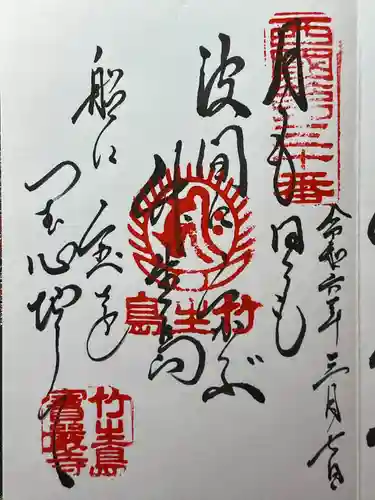 令和六年三月七日
西國第三十番
月も日も
波間にうかぶ
竹生島
竹生島
船に
宝を
つむ心地して
竹生島
寶嚴寺